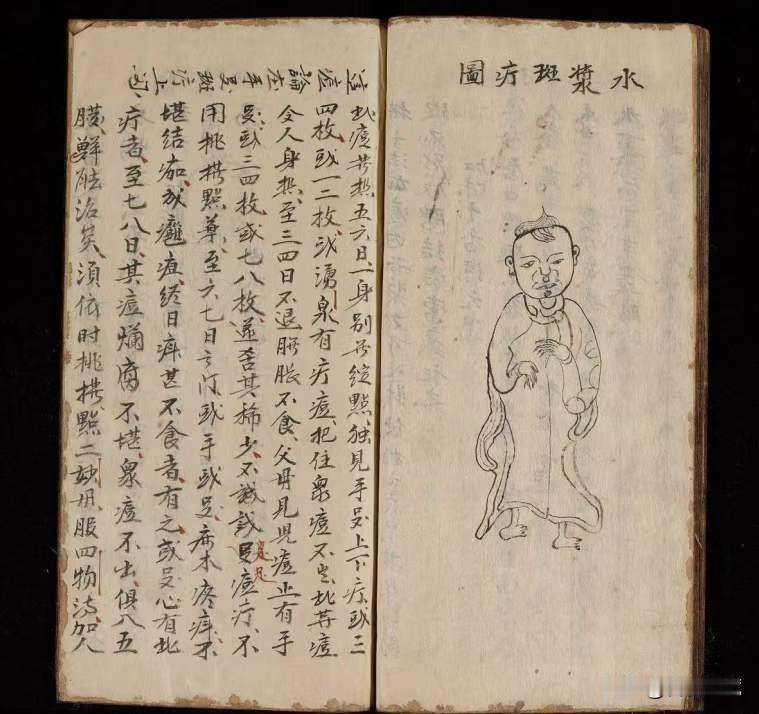 水漿斑疔圖
痘論在手足斑疔上
此痘发热五六日一身别无綻點独見手足上下疔或三
四枚或一二枚或湧泉有疔痘把住衆痘不出此等痘
令人身热至三四日不退膨脹不食父母見児痘止有手
足或三四枚或七八枚遂其稀少不識是痘疔不
用挑撥點藥至六七日之间或手或足麻木疼痒不
堪结痂成癰疽终日痒甚不食者有之或足心有此
疔者至七八日其痘爛腐不堪衆痘不出俱入五
臟鮮能治矣須依时挑撥點二妙丹服四物湯加人